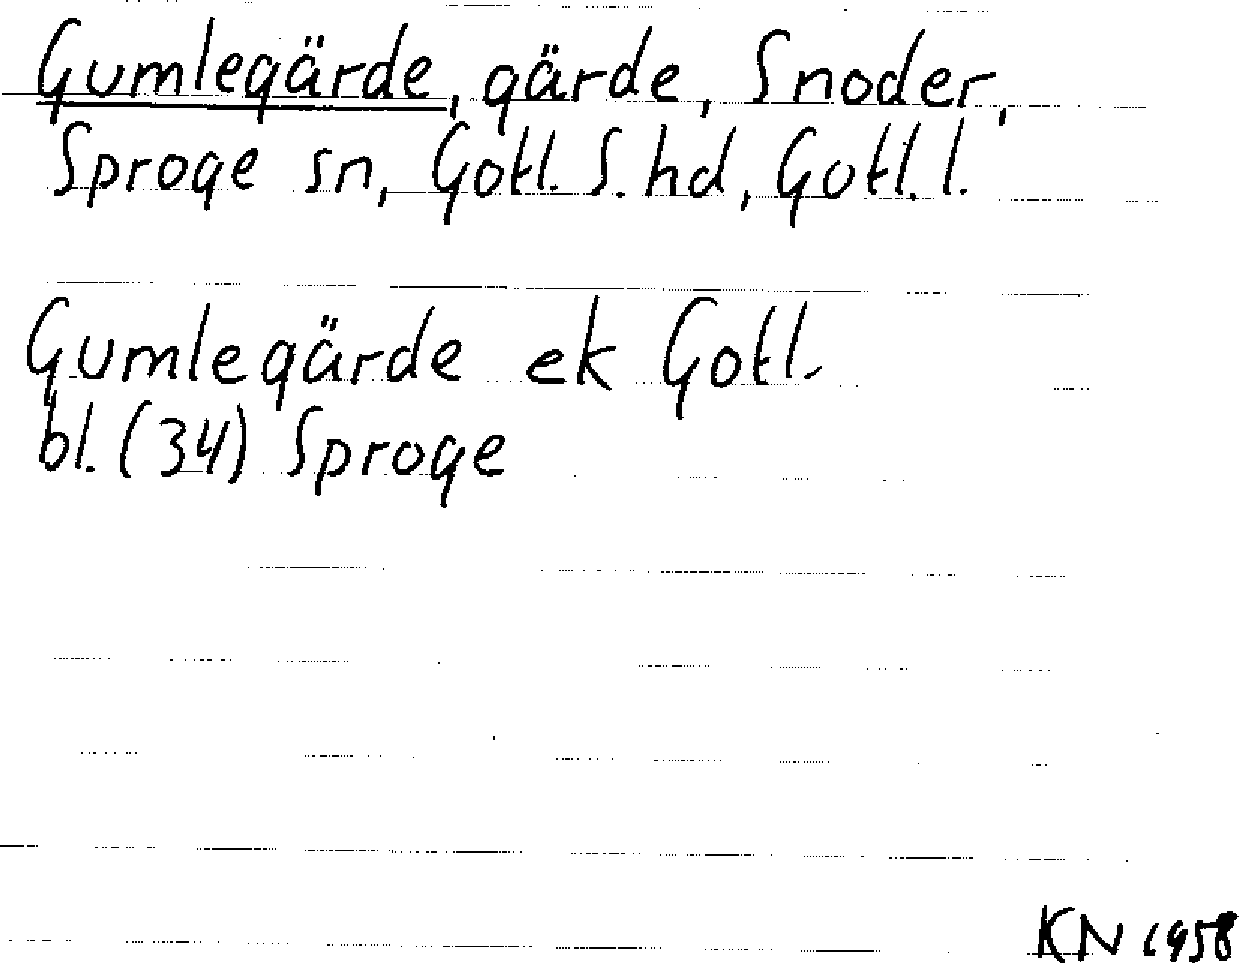 Gumlegärde, gärde, Snoder,
Sproge sn, Gotl. S. hd, Gotl. l.
Gumlegärde ek Gotl.
bl. (34) Sproge
KN 1958